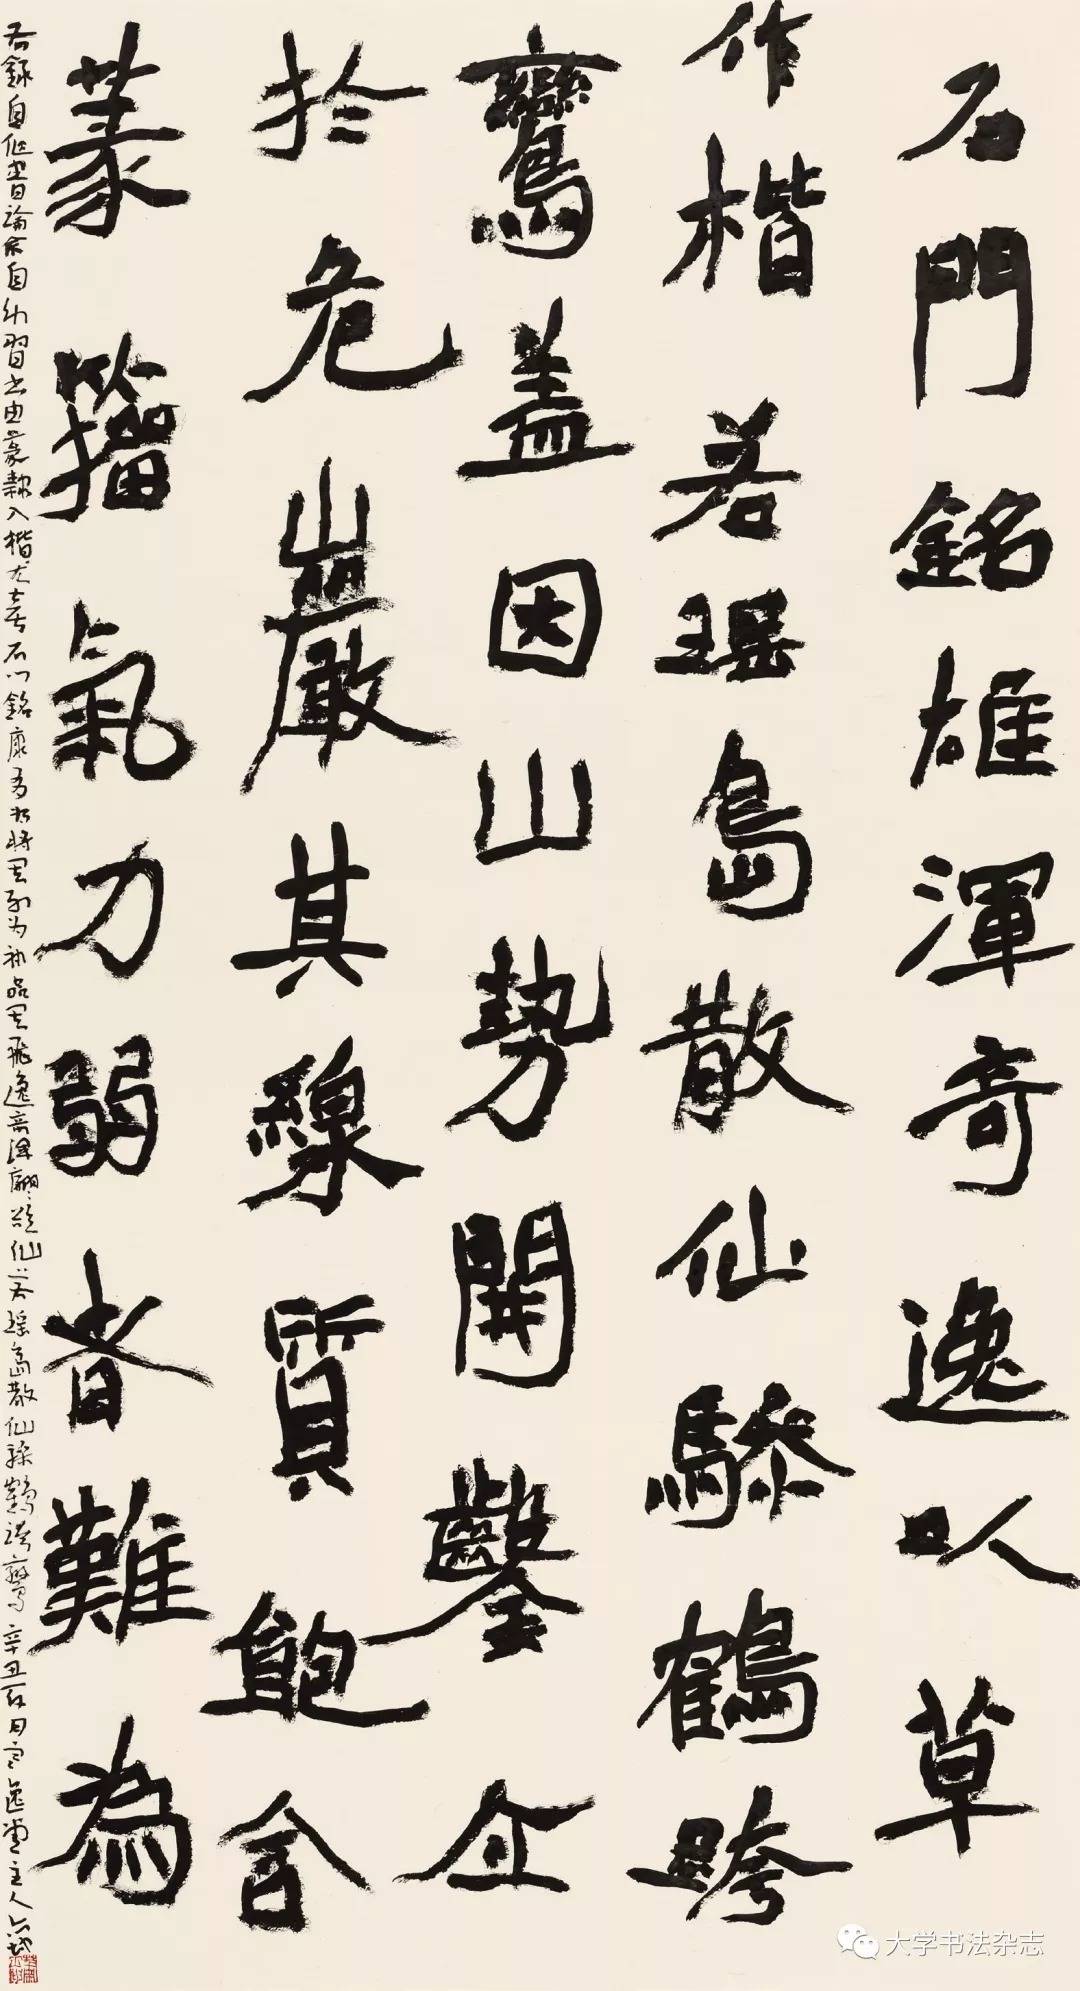 石門銘雄渾奇逸以草
作楷若瑶島散仙驂鶴跨
鸞蓋因山勢開鑿企
於危巖其線質飽含
篆籀氣力弱者難為
右錄自作書論余自幼習書由篆隸入楷尤喜石門銘康有為將其列為神品其飛逸奇渾翩翩欲仙若瑶島散仙驂鶴跨鸞辛丑百田宮逸堂主人
大学书法杂志